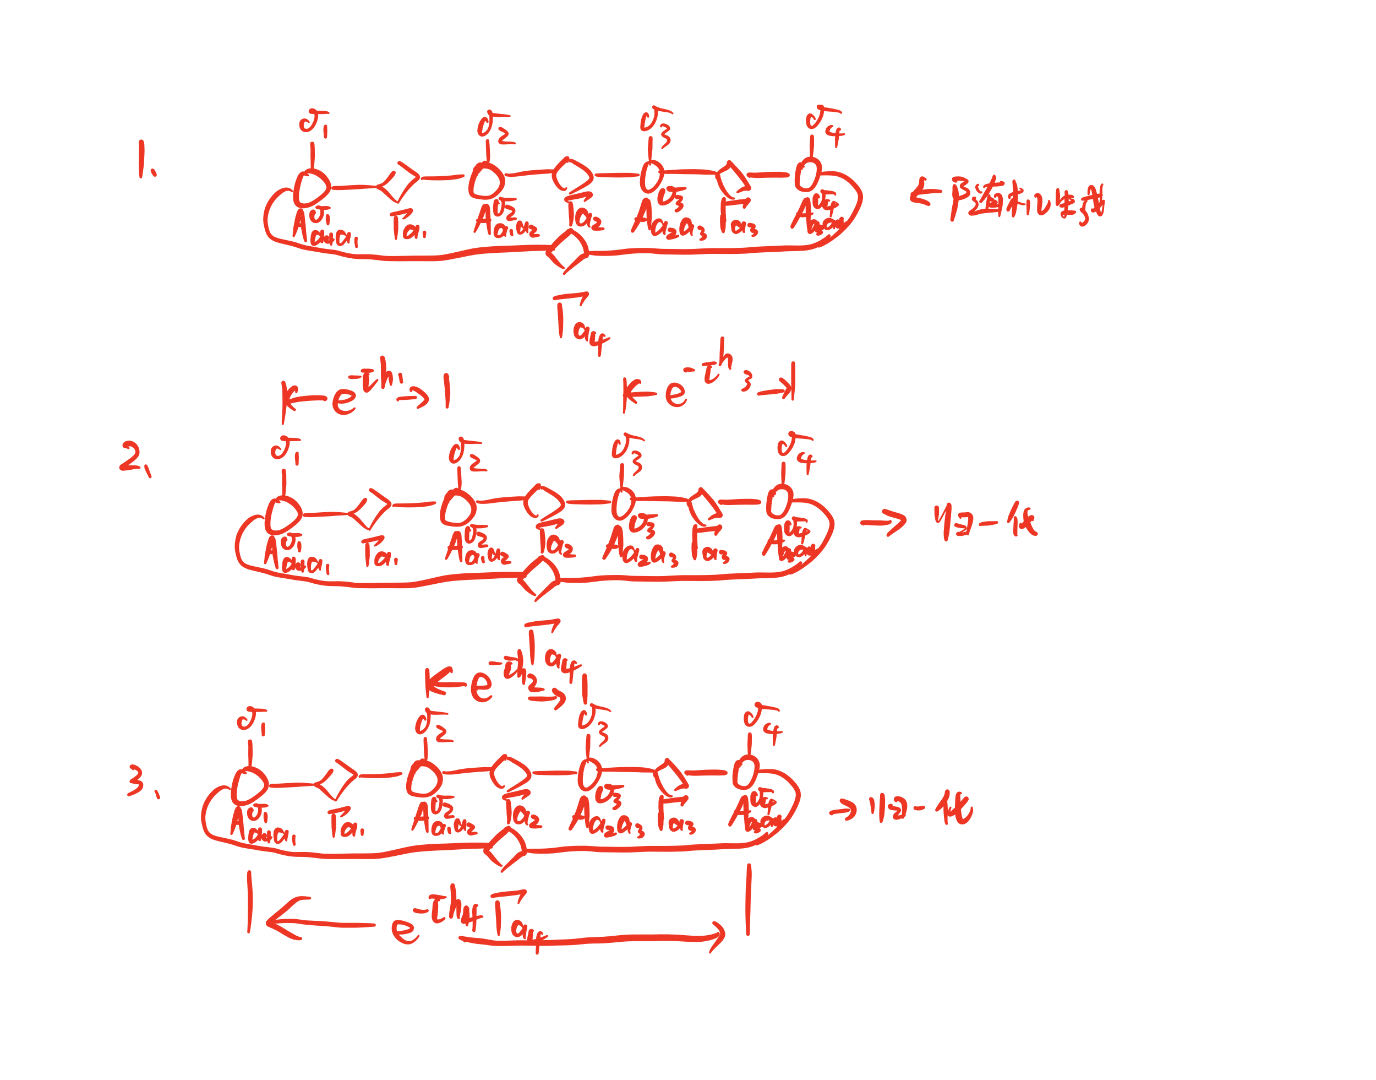 σ₁ σ₂ σ₃ σ₄
1. A^σ₁_a₄a₁ Γa₁ A^σ₂_a₁a₂ Γa₂ A^σ₃_a₂a₃ Γa₃ A^σ₄_a₃a₄ ← 随机生成
Γa₄
← e^-τh₁ → ← e^-τh₃ →
σ₁ σ₂ σ₃ σ₄
2、 A^σ₁_a₄a₁ Γa₁ A^σ₂_a₁a₂ Γa₂ A^σ₃_a₂a₃ Γa₃ A^σ₄_a₃a₄ → 归一化
Γa₄
← e^-τh₂ →
σ₁ σ₂ σ₃ σ₄
3、 A^σ₁_a₄a₁ Γa₁ A^σ₂_a₁a₂ Γa₂ A^σ₃_a₂a₃ Γa₃ A^σ₄_a₃a₄ → 归一化
← e^-τh₄ Γa₄ →